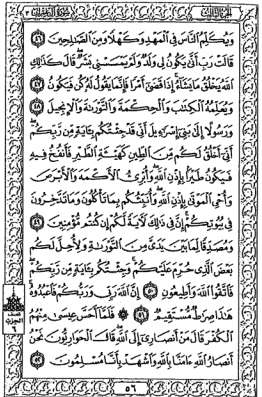 وَيُكَلِّمُ النَّاسَ فِي الْمَهْدِ وَكَهْلًا وَمِنَ الصَّالِحِينَ ٤٦
قَالَتْ رَبِّ أَنَّىٰ يَكُونُ لِي وَلَدٌ وَلَمْ يَمْسَسْنِي بَشَرٌ قَالَ كَذَٰلِكِ
اللَّهُ يَخْلُقُ مَا يَشَاءُ إِذَا قَضَىٰ أَمْرًا فَإِنَّمَا يَقُولُ لَهُ كُنْ فَيَكُونُ ٤٧
وَيُعَلِّمُهُ الْكِتَابَ وَالْحِكْمَةَ وَالتَّوْرَاةَ وَالْإِنْجِيلَ ٤٨
وَرَسُولًا إِلَىٰ بَنِي إِسْرَائِيلَ أَنِّي قَدْ جِئْتُكُمْ بِآيَةٍ مِنْ رَبِّكُمْ
أَنِّي أَخْلُقُ لَكُمْ مِنَ الطِّينِ كَهَيْئَةِ الطَّيْرِ فَأَنْفُخُ فِيهِ
فَيَكُونُ طَيْرًا بِإِذْنِ اللَّهِ وَأُبْرِئُ الْأَكْمَهَ وَالْأَبْرَصَ
وَأُحْيِي الْمَوْتَىٰ بِإِذْنِ اللَّهِ وَأُنَبِّئُكُمْ بِمَا تَأْكُلُونَ وَمَا تَدَّخِرُونَ
فِي بُيُوتِكُمْ إِنَّ فِي ذَٰلِكَ لَآيَةً لَكُمْ إِنْ كُنْتُمْ مُؤْمِنِينَ ٤٩
وَمُصَدِّقًا لِمَا بَيْنَ يَدَيَّ مِنَ التَّوْرَاةِ وَلِأُحِلَّ لَكُمْ
بَعْضَ الَّذِي حُرِّمَ عَلَيْكُمْ وَجِئْتُكُمْ بِآيَةٍ مِنْ رَبِّكُمْ
فَاتَّقُوا اللَّهَ وَأَطِيعُونِ ٥٠ إِنَّ اللَّهَ رَبِّي وَرَبُّكُمْ فَاعْبُدُوهُ
هَٰذَا صِرَاطٌ مُسْتَقِيمٌ ٥١ فَلَمَّا أَحَسَّ عِيسَىٰ مِنْهُمُ
الْكُفْرَ قَالَ مَنْ أَنْصَارِي إِلَى اللَّهِ قَالَ الْحَوَارِيُّونَ نَحْنُ
أَنْصَارُ اللَّهِ آمَنَّا بِاللَّهِ وَاشْهَدْ بِأَنَّا مُسْلِمُونَ ٥٢
نصف
الحزب
٦
٥٦